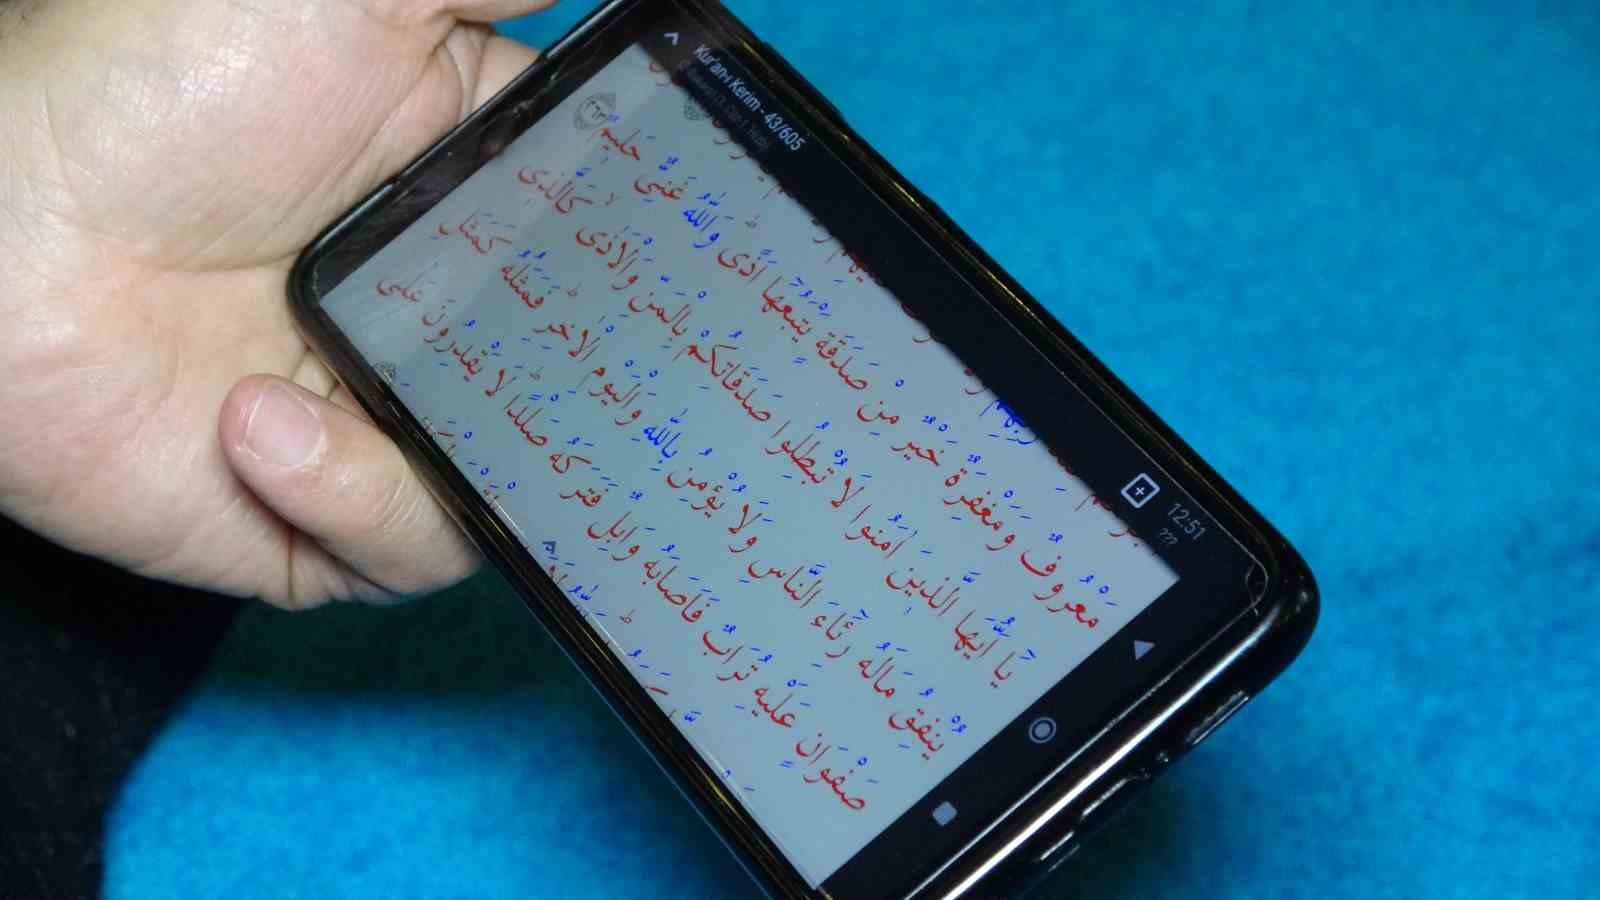 Kur'an-ı Kerim - 43/605
12:51
???
مَعْرُوفٌ وَمَغْفِرَةٌ خَيْرٌ مِنْ صَدَقَةٍ يَتْبَعُهَٓا اَذًىۜ وَاللّٰهُ غَنِيٌّ حَل۪يمٌ ﴿٢٦٣﴾
يَٓا اَيُّهَا الَّذ۪ينَ اٰمَنُوا لَا تُبْطِلُوا صَدَقَاتِكُمْ بِالْمَنِّ وَالْاَذٰىۙ كَالَّذ۪ي
يُنْفِقُ مَالَهُ رِئَٓاءَ النَّاسِ وَلَا يُؤْمِنُ بِاللّٰهِ وَالْيَوْمِ الْاٰخِرِۜ فَمَثَلُهُ كَمَثَلِ
صَفْوَانٍ عَلَيْهِ تُرَابٌ فَاَصَابَهُ وَابِلٌ فَتَرَكَهُ صَلْدًاۜ لَا يَقْدِرُونَ عَلٰى